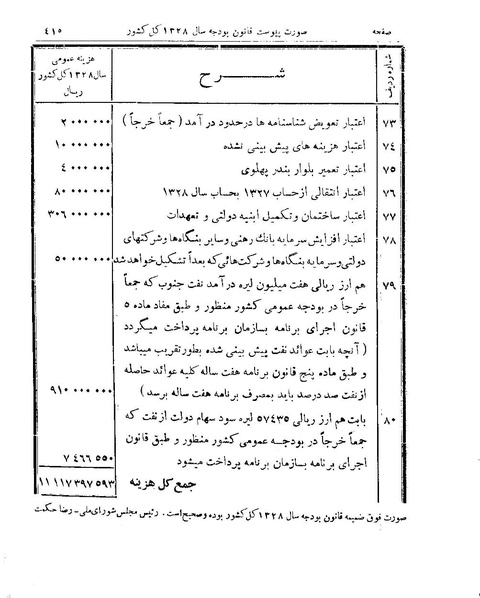 صفحه صورت پیوست قانون بودجه سال ۱۳۲۸ کل کشور ۴۱۵
شماره ردیف شـــرح هزینه عمومی سال ۱۳۲۸ کل کشور ریال
۷۳ اعتبار تعویض شناسنامه ها درحدود درآمد (جمعاً خرجاً) ۲۰۰۰۰۰۰
۷۴ اعتبار هزینه های پیش بینی نشده ۱۰۰۰۰۰۰۰
۷۵ اعتبار تعمیر بلوار بندر پهلوی ۴۰۰۰۰۰۰
۷۶ اعتبار انتقالی ازحساب ۱۳۲۷ بحساب سال ۱۳۲۸ ۸۰۰۰۰۰۰۰
۷۷ اعتبار ساختمان وتکمیل ابنیه دولتی و تعهدات ۳۰۶۰۰۰۰۰۰
۷۸ اعتبار افزایش سرمایه بانك رهنی وسایر بنگاه‌ها وشرکتهای
دولتی وسرمایه بنگاه‌ها وشرکت‌هائی‌که بعداً تشکیل‌خواهدشد ۵۰۰۰۰۰۰۰
۷۹ هم ارز ریالی هفت میلیون لیره درآمد نفت جنوب که جمعاً
خرجاً در بودجه عمومی کشور منظور و طبق مفاد ماده ۵
قانون اجرای برنامه بسازمان برنامه پرداخت میگردد
(آنچه بابت عوائد نفت پیش بینی شده بطور تقریب میباشد
و طبق ماده پنج قانون برنامه هفت ساله کلیه عوائد حاصله
از نفت صد درصد باید بمصرف برنامه هفت ساله برسد) ۹۱۰۰۰۰۰۰۰
۸۰ بابت هم ارز ریالی ۵۷۴۳۵ لیره سود سهام دولت از نفت که
جمعاً خرجاً در بودجه عمومی کشور منظور و طبق قانون
اجرای برنامه بسازمان برنامه پرداخت میشود ۷۴۶۶۵۵۰
جمع کل هزینه ۱۱۱۱۷۳۹۷۵۹۳
صورت فوق ضمیمه قانون بودجه سال ۱۳۲۸ کل کشور بوده وصحیح است. رئیس مجلس‌شورای‌ملی - رضا حکمت